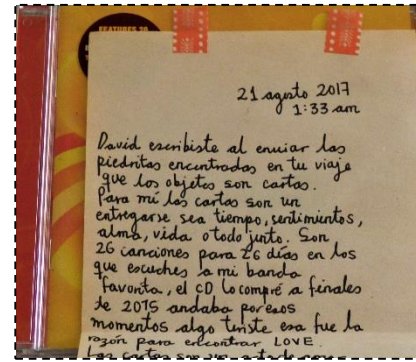 FEATURES 10
21 agosto 2017
1:33 am
David escribiste al enviar las
piedritas encontradas en tu viaje
que los objetos son cartas.
Para mí las cartas son un
entregarse sea tiempo, sentimientos,
alma, vida o todo junto. Son
26 canciones para 26 días en los
que escuches a mi banda
favorita, el CD lo compré a finales
de 2015 andaba por esos
momentos algo triste esa fue la
razón para encontrar LOVE.